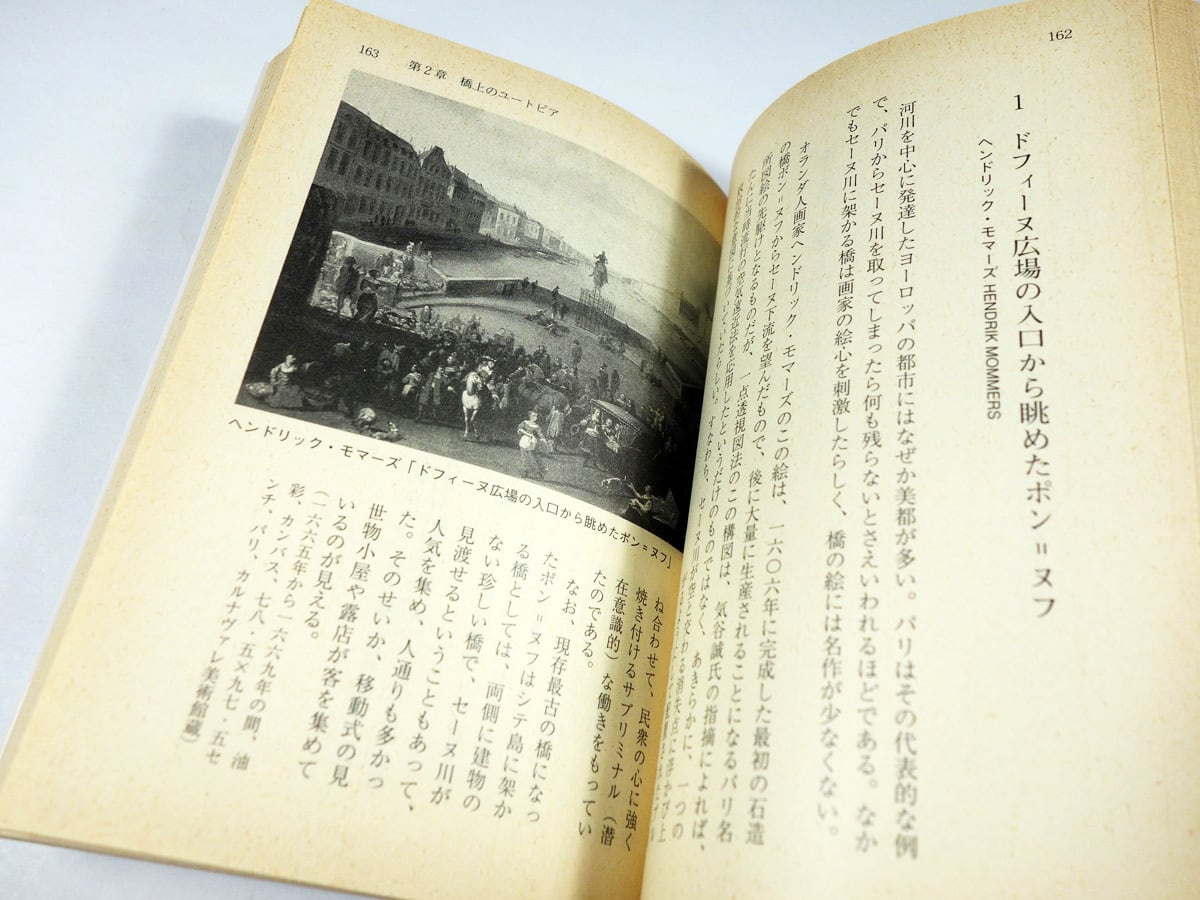 162
1 ドフィーヌ広場の入口から眺めたポン＝ヌフ
ヘンドリック・モマーズ HENDRIK MOMMERS
河川を中心に発達したヨーロッパの都市にはなぜか美都が多い。パリはその代表的な例
で、パリからセーヌ川を取ってしまったら何も残らないとさえいわれるほどである。なか
でもセーヌ川に架かる橋は画家の絵心を刺激したらしく、橋の絵には名作が少なくない。
オランダ人画家ヘンドリック・モマーズのこの絵は、一六〇六年に完成した最初の石造
の橋ポン＝ヌフからセーヌ下流を望んだもので、後に大量に生産されることになるパリ名
所図絵の先駆けとなるものだが、一点透視図法のこの構図は、気谷誠氏の指摘によれば、
たんに当時流行の空気遠近法を応用したというだけのものではなく、あきらかに、一つの
すなわち、セーヌ川が空と交わる消失点に浮かび上
163
第2章 橋上のユートピア
ヘンドリック・モマーズ「ドフィーヌ広場の入口から眺めたポン＝ヌフ」
ね合わせて、民衆の心に強く
焼き付けるサブリミナル（潜
在意識的）な働きをもってい
たのである。
なお、現存最古の橋になっ
たポン＝ヌフはシテ島に架か
る橋としては、両側に建物の
ない珍しい橋で、セーヌ川が
見渡せるということもあって、
人気を集め、人通りも多かっ
た。そのせいか、移動式の見
世物小屋や露店が客を集めて
いるのが見える。
（一六六五年から一六六九年の間、油
彩、カンバス、七八・五×九七・五セ
ンチ、パリ、カルナヴァレ美術館蔵）